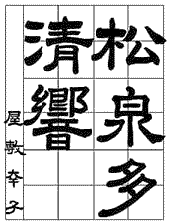 松泉多
清響
屋敷幸子